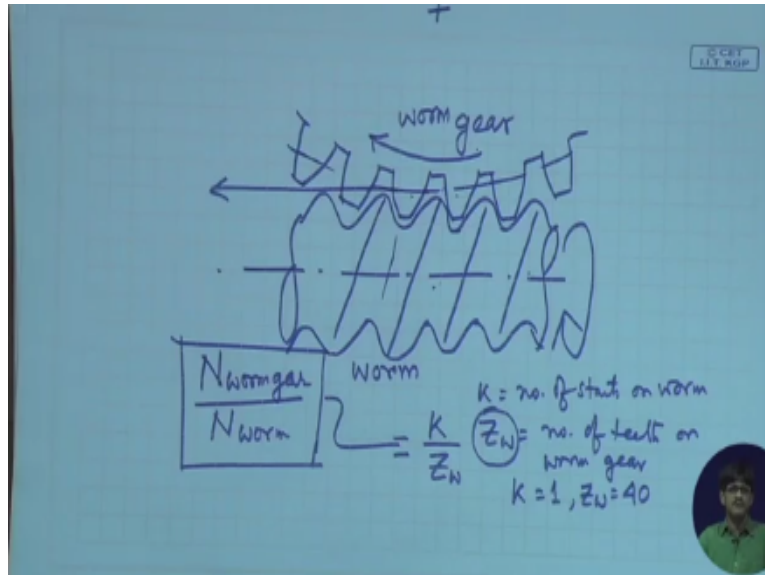 +
© CET
I.I.T. KGP
worm gear
worm
Nwormgear
Nworm
= K
Zw
K = no. of starts on worm
Zw = no. of teeth on
worm gear
K = 1, Zw = 40